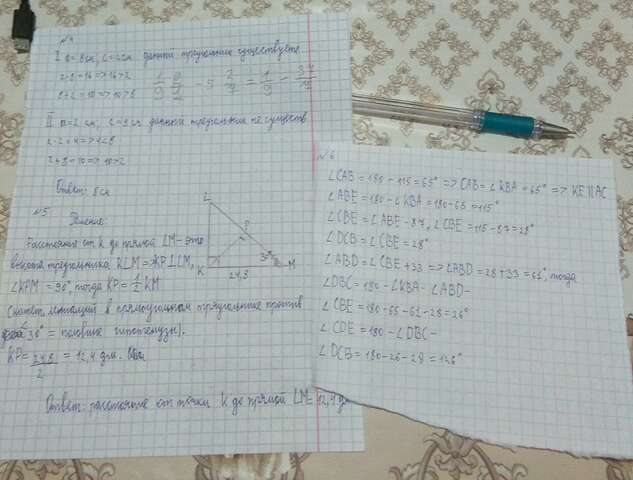 I a=8см, c=2см данный треугольник существует
8+8=16=>16>2
8+2=10=>10>8
II a=2 см, c=8 см данный треугольник не существ
2+2=4=>4<8
2+8=10=>10>2
Ответ: 8см
№5
Решение:
Расстояние от K до прямой LM-это
высота треугольника KLM=>KP⊥LM,
∠KPM=90° тогда KP=1/2 KM
(катет, лежащий в прямоугольном треугольнике против
30° = половине гипотенузы).
KP=24,8/2=12,4дм.
Ответ: расстояние от точки K до прямой LM=12,4
L
P
30°
K
24,8
M
№6
∠CAB=180-115=65°=>∠CAB=∠KBA=65°=>KE||AC
∠ABE=180-∠KBA=180-65=115°
∠CBE=∠ABE-87, ∠CBE=115-87=28°
∠DCB=∠CBE=28°
∠ABD=∠CBE+33=>∠ABD=28+33=61°, тогда
∠DBC=180-∠KBA-∠ABD-
∠CBE=180-65-61-28=26°
∠CDE=180-∠DBC-
∠DCB=180-26-28=126°